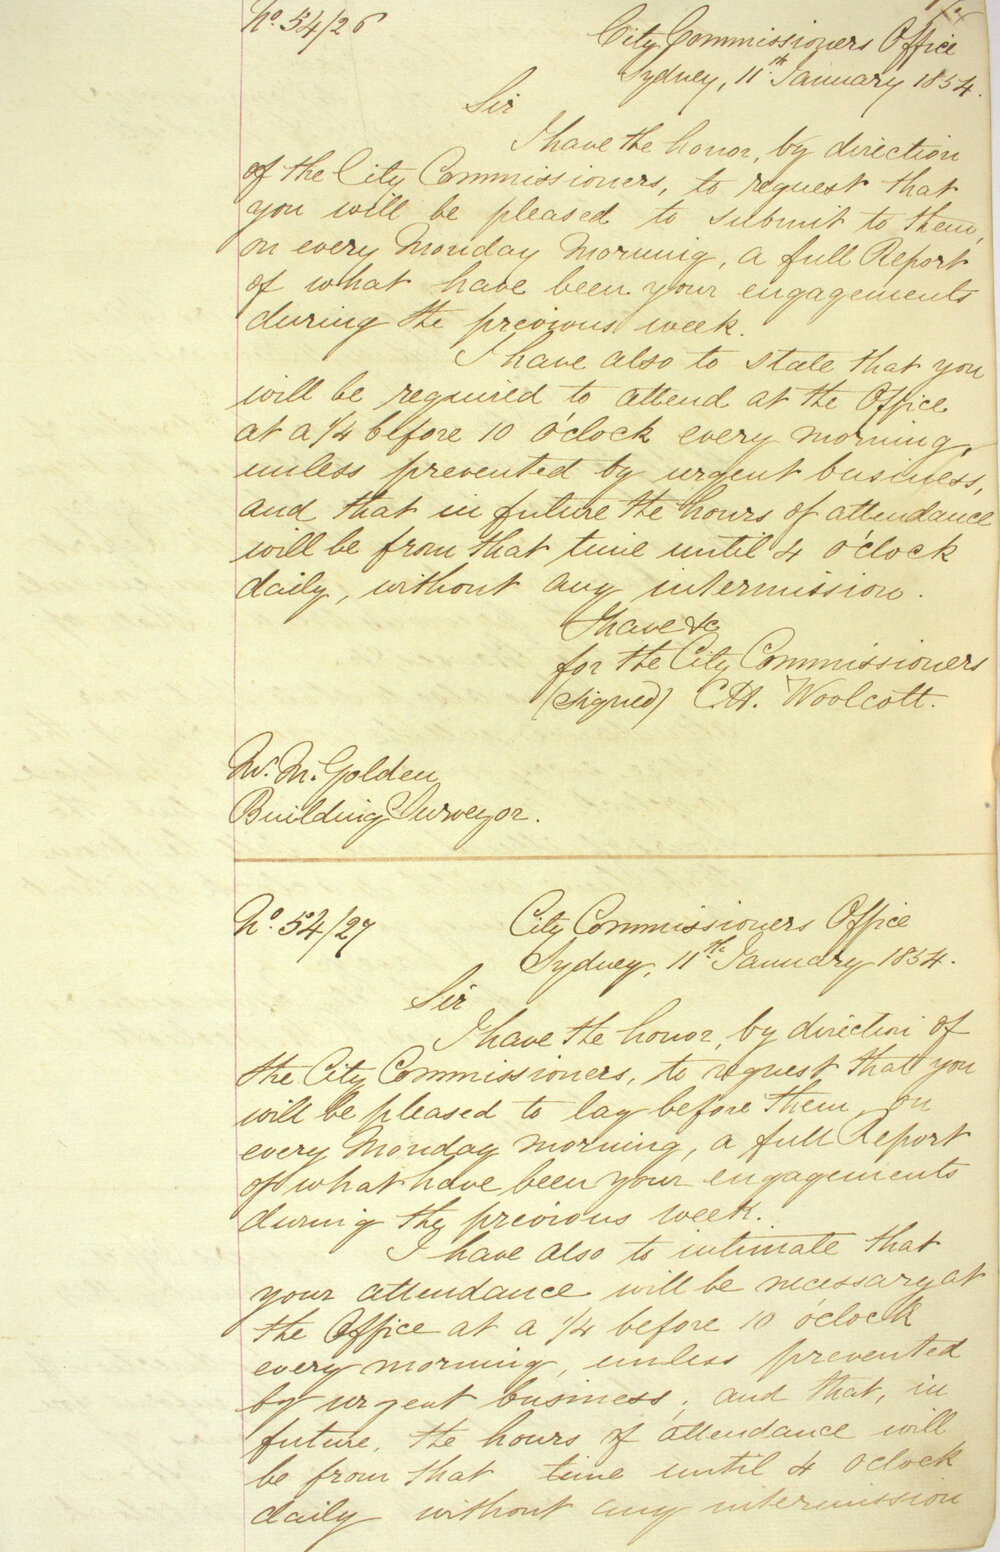 No. 54/26
City Commissioners Office
Sydney, 11th January 1854.
Sir
I have the honor, by direction
of the City Commissioners, to request that
you will be pleased to submit to them,
on every Monday Morning, a full Report
of what have been your engagements
during the previous week.
I have also to state that you
will be required to attend at the Office
at a 1/4 before 10 o'clock every morning,
unless prevented by urgent business,
and that in future the hours of attendance
will be from that time until 4 o'clock
daily, without any intermission.
I have &c
for the City Commissioners
(signed) C.H. Woolcott.
Mr. M. Golden
Building Surveyor.
No. 54/27
City Commissioners Office
Sydney, 11th January 1854.
Sir
I have the honor, by direction of
the City Commissioners, to request that you
will be pleased to lay before them, on
every Monday morning, a full Report
of what have been your engagements
during the previous week.
I have also to intimate that
your attendance will be necessary at
the Office at a 1/4 before 10 o'clock
every morning, unless prevented
by urgent business; and that, in
future, the hours of attendance will
be from that time until 4 o'clock
daily without any intermission